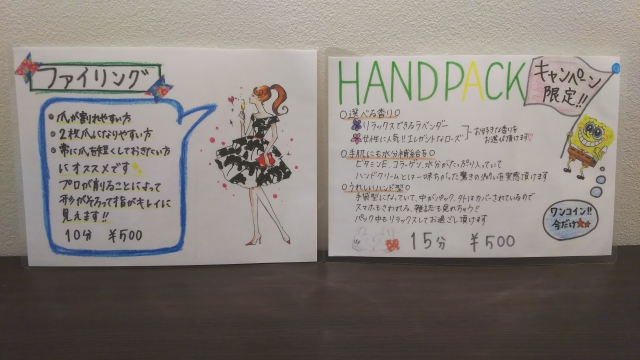 ファイリング
• 爪が割れやすい方
• 2枚爪になりやすい方
• 常に爪を短くしておきたい方
にオススメです
プロが削ることによって
形がそろって指がキレイに
見えます!!
10分 ¥500
HANDPACK
キャンペーン
限定!!
○選べる香り○
リラックスできるラベンダー
女性に人気!!エレガントなローズ
お好きな香りを
お選び頂けます
○手肌にも水分補給を○
ビタミンE、コラーゲン、水分がたっぷり入っていて
ハンドクリームとは一味ちがった驚きの潤いを実感頂けます
○うれしいハンド型○
手袋型になっていて、中がパック、外はカバーされているので
スマホもさわれる、雑誌も見れちゃう!!
パック中もリラックスしてお過ごし頂けます
15分 ¥500
ワンコイン!!
今だけ